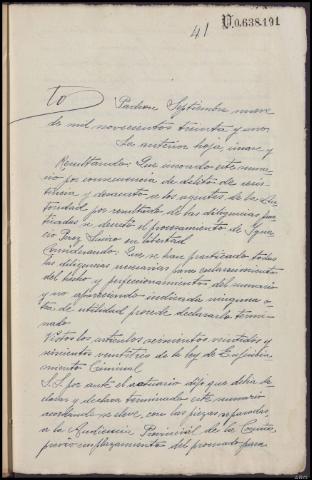 41 V.0.638.191
to Padron Septiembre nueve
de mil novecientos treinta y uno.
La anterior hoja, unase y
Resultando: Que incoado este suma-
rio por consecuencia de delito de resis-
tencia y desacato a los agentes de la Au-
toridad por resultado de las diligencias prac-
ticadas se decretó el procesamiento de Ygna-
cio Perez en libertad
Considerando: Que se han practicado todas
las diligencias necesarias para esclarecimiento
del hecho y perfeccionamiento del sumario
y no apareciendo indicada ninguna o-
tra de utilidad procede declararlo termi-
nado
Vistos los articulos seiscientos veintidos y
seiscientos veintitres de la ley de Enjuicia-
miento Criminal
S.S. por ante el actuario dijo que debia de-
clarar y declara terminado este sumario
acordando se eleve, con las piezas separadas,
a la Audiencia Provincial de la Coruña,
previo emplazamiento del procesado para